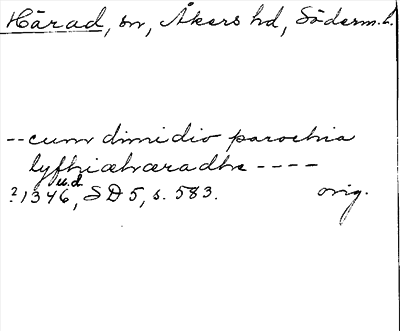 Härad, sn, Åkers hd, Söderm. l.
-- cum dimidio parochia
lyfhiæhæradhe ----
u.d.
? 1346, SD 5, s. 583. orig.